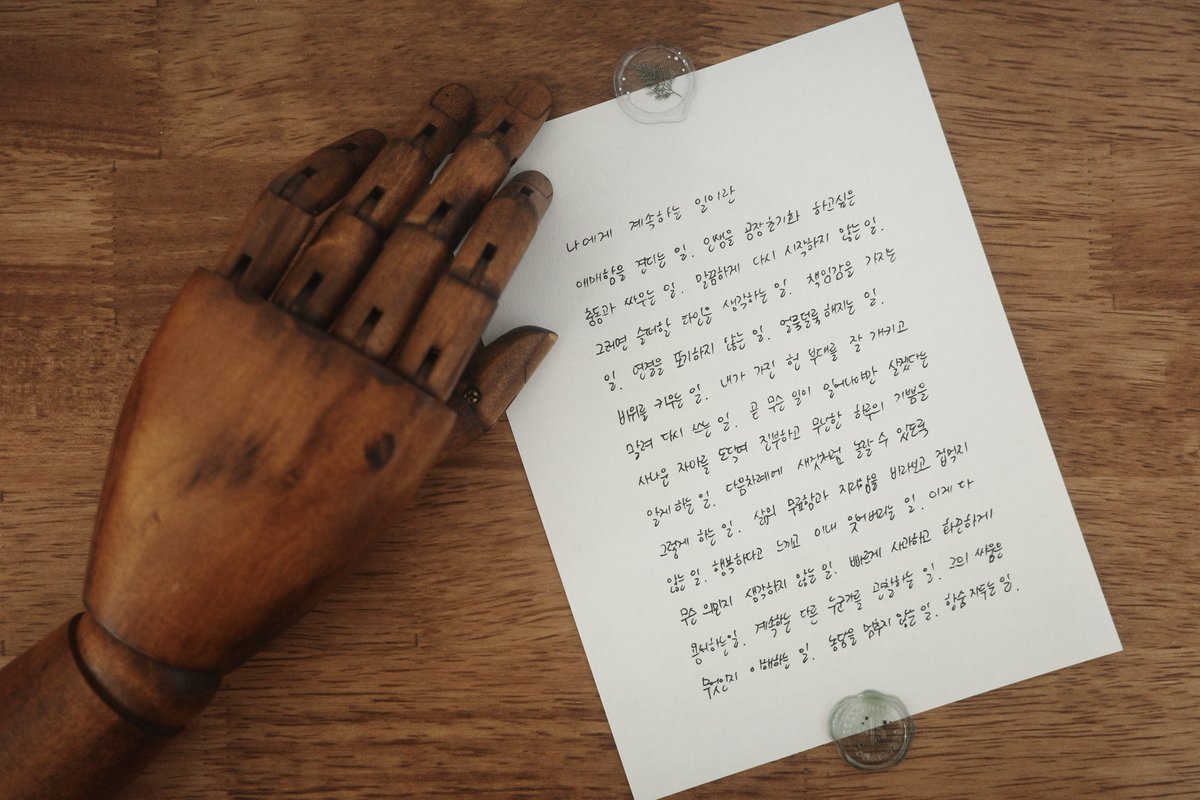 나에게 계속하는 일이란
애매함을 견디는 일. 인생을 공장초기화 하고싶은
충동과 싸우는 일. 말끔하게 다시 시작하지 않는 일.
그러면 슬퍼할 타인을 생각하는 일. 책임감을 가지는
일. 연결을 포기하지 않는 일. 얼룩덜룩해지는 일.
바위를 키우는 일. 내가 가진 헌 부대를 잘 개키고
말려 다시 쓰는 일. 곧 무슨 일이 일어나야만 살겠다는
사나운 자아를 도닥여 진부하고 무난한 하루의 기쁨을
알게 하는 일. 다음차례에 새것처럼 놀랄 수 있도록
그렇게 하는 일. 삶의 무료함과 지리함을 비라보고 겁먹지
않는 일. 행복하다고 느끼고 이내 잊어버리는 일. 이게 다
무슨 의민지 생각하지 않는 일. 빠르게 사과하고 타끈하게
용서하는 일. 계속하는 다른 누군가를 관찰하는 일. 그의 싸움은
무엇인지 이해하는 일. 농담을 멈추지 않는 일. 한숨 지두는 일.